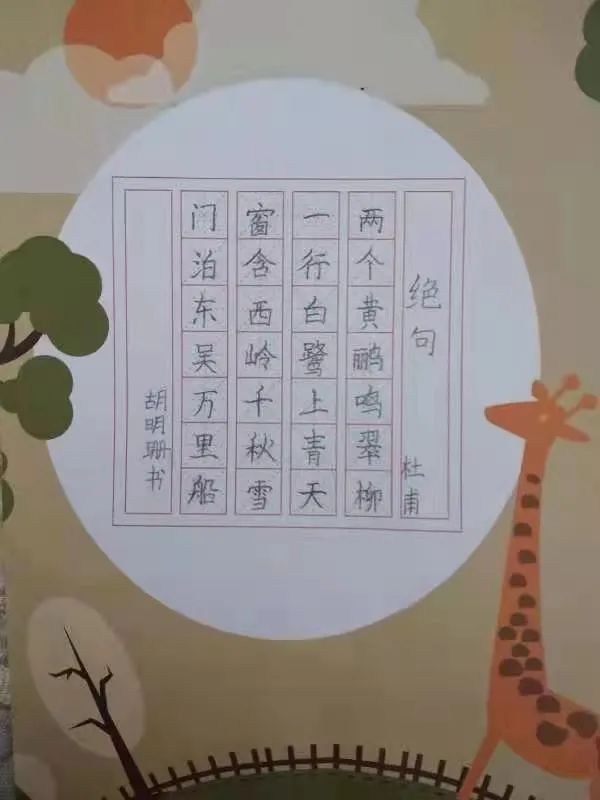 绝句
杜甫
两个黄鹂鸣翠柳
一行白鹭上青天
窗含西岭千秋雪
门泊东吴万里船
胡明珊书